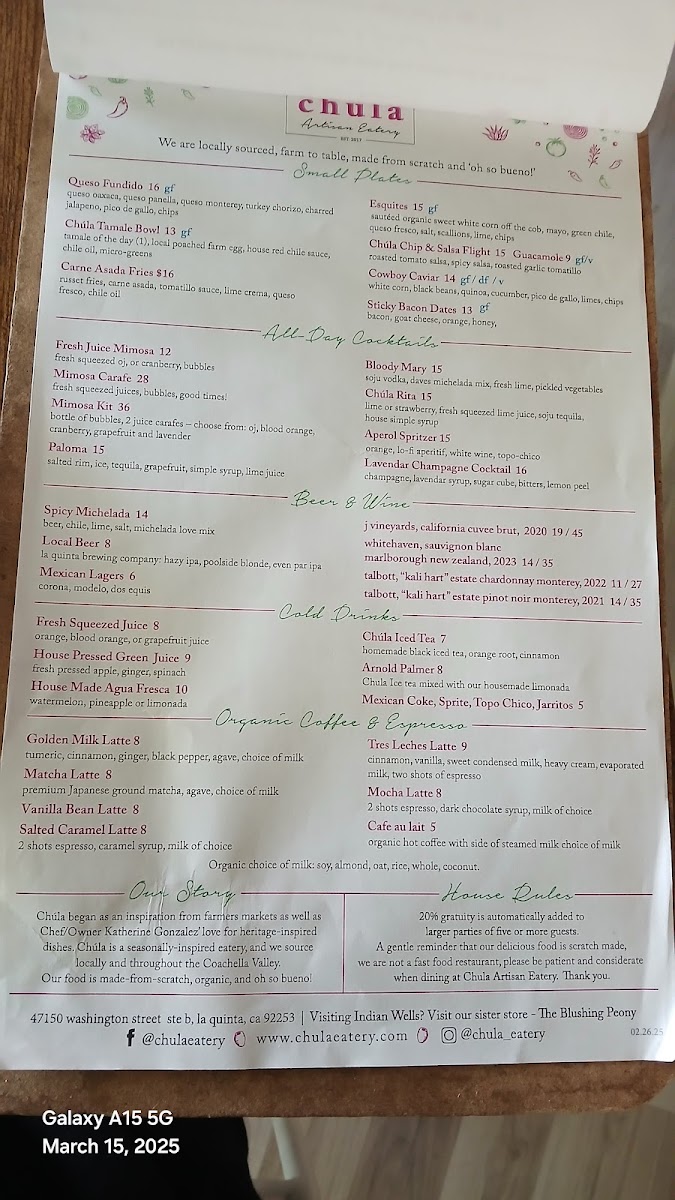 chula
Artisan Eatery
EST 2017
We are locally sourced, farm to table, made from scratch and 'oh so bueno!'
Small Plates
Queso Fundido 16 gf
queso oaxaca, queso panella, queso monterey, turkey chorizo, charred
jalapeno, pico de gallo, chips
Chúla Tamale Bowl 13 gf
tamale of the day (1), local poached farm egg, house red chile sauce,
chile oil, micro-greens
Carne Asada Fries $16
russet fries, carne asada, tomatillo sauce, lime crema, queso
fresco, chile oil
Esquites 15 gf
sautéed organic sweet white corn off the cob, mayo, green chile,
queso fresco, salt, scallions, lime, chips
Chúla Chip & Salsa Flight 15 Guacamole 9 gf/v
roasted tomato salsa, spicy salsa, roasted garlic tomatillo
Cowboy Caviar 14 gf / df / v
white corn, black beans, quinoa, cucumber, pico de gallo, limes, chips
Sticky Bacon Dates 13 gf
bacon, goat cheese, orange, honey,
All-Day Cocktails
Fresh Juice Mimosa 12
fresh squeezed oj, or cranberry, bubbles
Mimosa Carafe 28
fresh squeezed juices, bubbles, good times!
Mimosa Kit 36
bottle of bubbles, 2 juice carafes – choose from: oj, blood orange,
cranberry, grapefruit and lavender
Paloma 15
salted rim, ice, tequila, grapefruit, simple syrup, lime juice
Bloody Mary 15
soju vodka, daves michelada mix, fresh lime, pickled vegetables
Chúla Rita 15
lime or strawberry, fresh squeezed lime juice, soju tequila,
house simple syrup
Aperol Spritzer 15
orange, lo-fi aperitif, white wine, topo-chico
Lavendar Champagne Cocktail 16
champagne, lavendar syrup, sugar cube, bitters, lemon peel
Beer & Wine
Spicy Michelada 14
beer, chile, lime, salt, michelada love mix
Local Beer 8
la quinta brewing company: hazy ipa, poolside blonde, even par ipa
Mexican Lagers 6
corona, modelo, dos equis
j vineyards, california cuvee brut, 2020 19 / 45
whitehaven, sauvignon blanc
marlborough new zealand, 2023 14 / 35
talbott, "kali hart" estate chardonnay monterey, 2022 11 / 27
talbott, "kali hart" estate pinot noir monterey, 2021 14 / 35
Cold Drinks
Fresh Squeezed Juice 8
orange, blood orange, or grapefruit juice
House Pressed Green Juice 9
fresh pressed apple, ginger, spinach
House Made Agua Fresca 10
watermelon, pineapple or limonada
Chúla Iced Tea 7
homemade black iced tea, orange root, cinnamon
Arnold Palmer 8
Chula Ice tea mixed with our housemade limonada
Mexican Coke, Sprite, Topo Chico, Jarritos 5
Organic Coffee & Espresso
Golden Milk Latte 8
tumeric, cinnamon, ginger, black pepper, agave, choice of milk
Matcha Latte 8
premium Japanese ground matcha, agave, choice of milk
Vanilla Bean Latte 8
Salted Caramel Latte 8
2 shots espresso, caramel syrup, milk of choice
Tres Leches Latte 9
cinnamon, vanilla, sweet condensed milk, heavy cream, evaporated
milk, two shots of espresso
Mocha Latte 8
2 shots espresso, dark chocolate syrup, milk of choice
Cafe au lait 5
organic hot coffee with side of steamed milk choice of milk
Organic choice of milk: soy, almond, oat, rice, whole, coconut.
Our Story
Chúla began as an inspiration from farmers markets as well as
Chef/Owner Katherine Gonzalez' love for heritage-inspired
dishes. Chúla is a seasonally-inspired eatery, and we source
locally and throughout the Coachella Valley.
Our food is made-from-scratch, organic, and oh so bueno!
House Rules
20% gratuity is automatically added to
larger parties of five or more guests.
A gentle reminder that our delicious food is scratch made,
we are not a fast food restaurant, please be patient and considerate
when dining at Chula Artisan Eatery. Thank you.
47150 washington street ste b, la quinta, ca 92253 | Visiting Indian Wells? Visit our sister store - The Blushing Peony
@chulaeatery www.chulaeatery.com @chula_eatery
02.26.25
Galaxy A15 5G
March 15, 2025